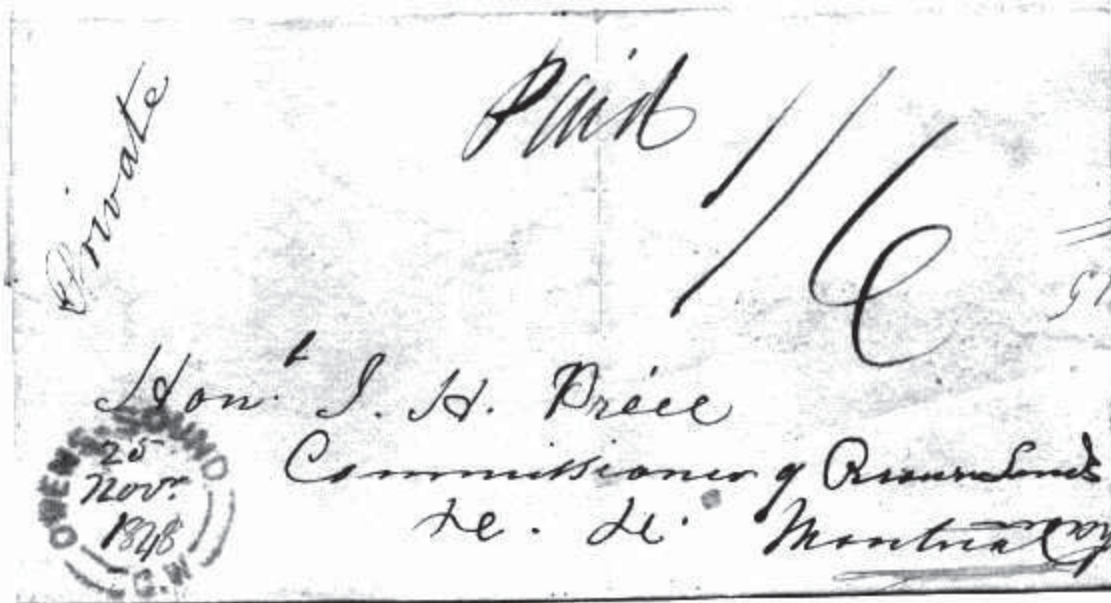 Private
Paid 1/6
Hon. J. H. Price
Commissioner of Crown Lands
&c. &c. Montreal
OWEN'S-SOUND
25
Novr.
1848
C.W